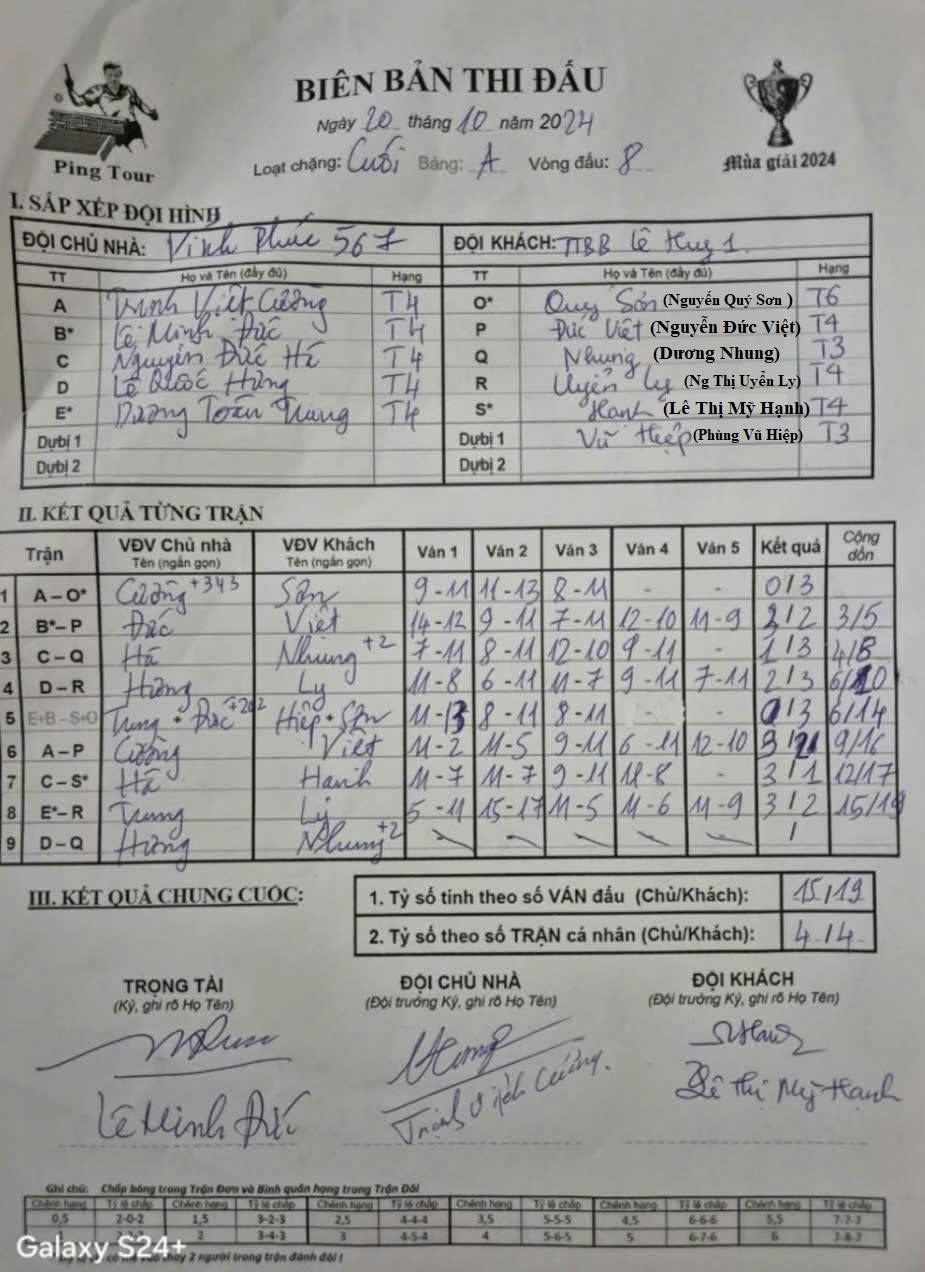 BIÊN BẢN THI ĐẤU
Ngày 20 tháng 10 năm 2024
Ping Tour
Loạt chặng: Cuối Bảng: A Vòng đấu: 8
Mùa giải 2024
I. SẮP XẾP ĐỘI HÌNH
ĐỘI CHỦ NHÀ: Vĩnh Phúc 567 ĐỘI KHÁCH: TTBB Lê Huy 1
TT Họ và Tên (đầy đủ) Hạng TT Họ và Tên (đầy đủ) Hạng
A Trịnh Việt Cường T4 O* Quý Sơn (Nguyến Quý Sơn ) T6
B* Lê Minh Đức T4 P Đức Việt (Nguyễn Đức Việt) T4
C Nguyễn Đức Hà T4 Q Nhung (Dương Nhung) T3
D Lê Quốc Hưng T4 R Uyển Ly (Ng Thị Uyển Ly) T4
E* Dương Toàn Trung T4 S* Hạnh (Lê Thị Mỹ Hạnh) T4
Dựbị 1 Dựbị 1 Vũ Hiệp (Phùng Vũ Hiệp) T3
Dựbị 2 Dựbị 2
II. KẾT QUẢ TỪNG TRẬN
Trận VĐV Chủ nhà Tên (ngắn gọn) VĐV Khách Tên (ngắn gọn) Ván 1 Ván 2 Ván 3 Ván 4 Ván 5 Kết quả Cộng dồn
1 A – O* Cường +343 Sơn 9 - 11 11 - 13 8 - 11 - - 0/3
2 B* – P Đức Việt 14 - 12 9 - 11 7 - 11 12 - 10 11 - 9 3/2 3/5
3 C – Q Hà Nhung +2 7 - 11 8 - 11 12 - 10 9 - 11 - 1/3 4/8
4 D – R Hưng Ly 11 - 8 6 - 11 11 - 7 9 - 11 7 - 11 2/3 6/10
5 E+B – S+O Trung + Đức +202 Hiệp + Sơn 11 - 13 8 - 11 8 - 11 - 0/3 6/14
6 A – P Cường Việt 11 - 2 11 - 5 9 - 11 6 - 11 12 - 10 3/2 9/16
7 C – S* Hà Hạnh 11 - 7 11 - 7 9 - 11 - 8 - 3/1 12/17
8 E* – R Trung Lý 5 - 11 15 - 17 11 - 5 11 - 6 11 - 9 3/2 15/19
9 D – Q Hưng Nhung +2 /
III. KẾT QUẢ CHUNG CUỘC:
1. Tỷ số tính theo số VÁN đấu (Chủ/Khách): 15/19
2. Tỷ số theo số TRẬN cá nhân (Chủ/Khách): 4/4
TRỌNG TÀI ĐỘI CHỦ NHÀ ĐỘI KHÁCH
(Ký, ghi rõ Họ Tên) (Đội trưởng Ký, ghi rõ Họ Tên) (Đội trưởng Ký, ghi rõ Họ Tên)
Lê Minh Đức Trịnh Việt Cường. Lê Thị Mỹ Hạnh
Ghi chú: Chấp bóng trong Trận Đơn và Bình quân hạng trong Trận Đôi
Chênh hạng Tỷ lệ chấp Chênh hạng Tỷ lệ chấp Chênh hạng Tỷ lệ chấp Chênh hạng Tỷ lệ chấp Chênh hạng Tỷ lệ chấp Chênh hạng Tỷ lệ chấp
0,5 2-0-2 1,5 3-2-3 2,5 4-4-4 3,5 5-5-5 4,5 6-6-6 5,5 7-7-7
2 3-4-3 3 4-5-4 4 5-6-5 5 6-7-6 6 7-8-7
Galaxy S24+
thay 2 người trong trận đánh đôi !